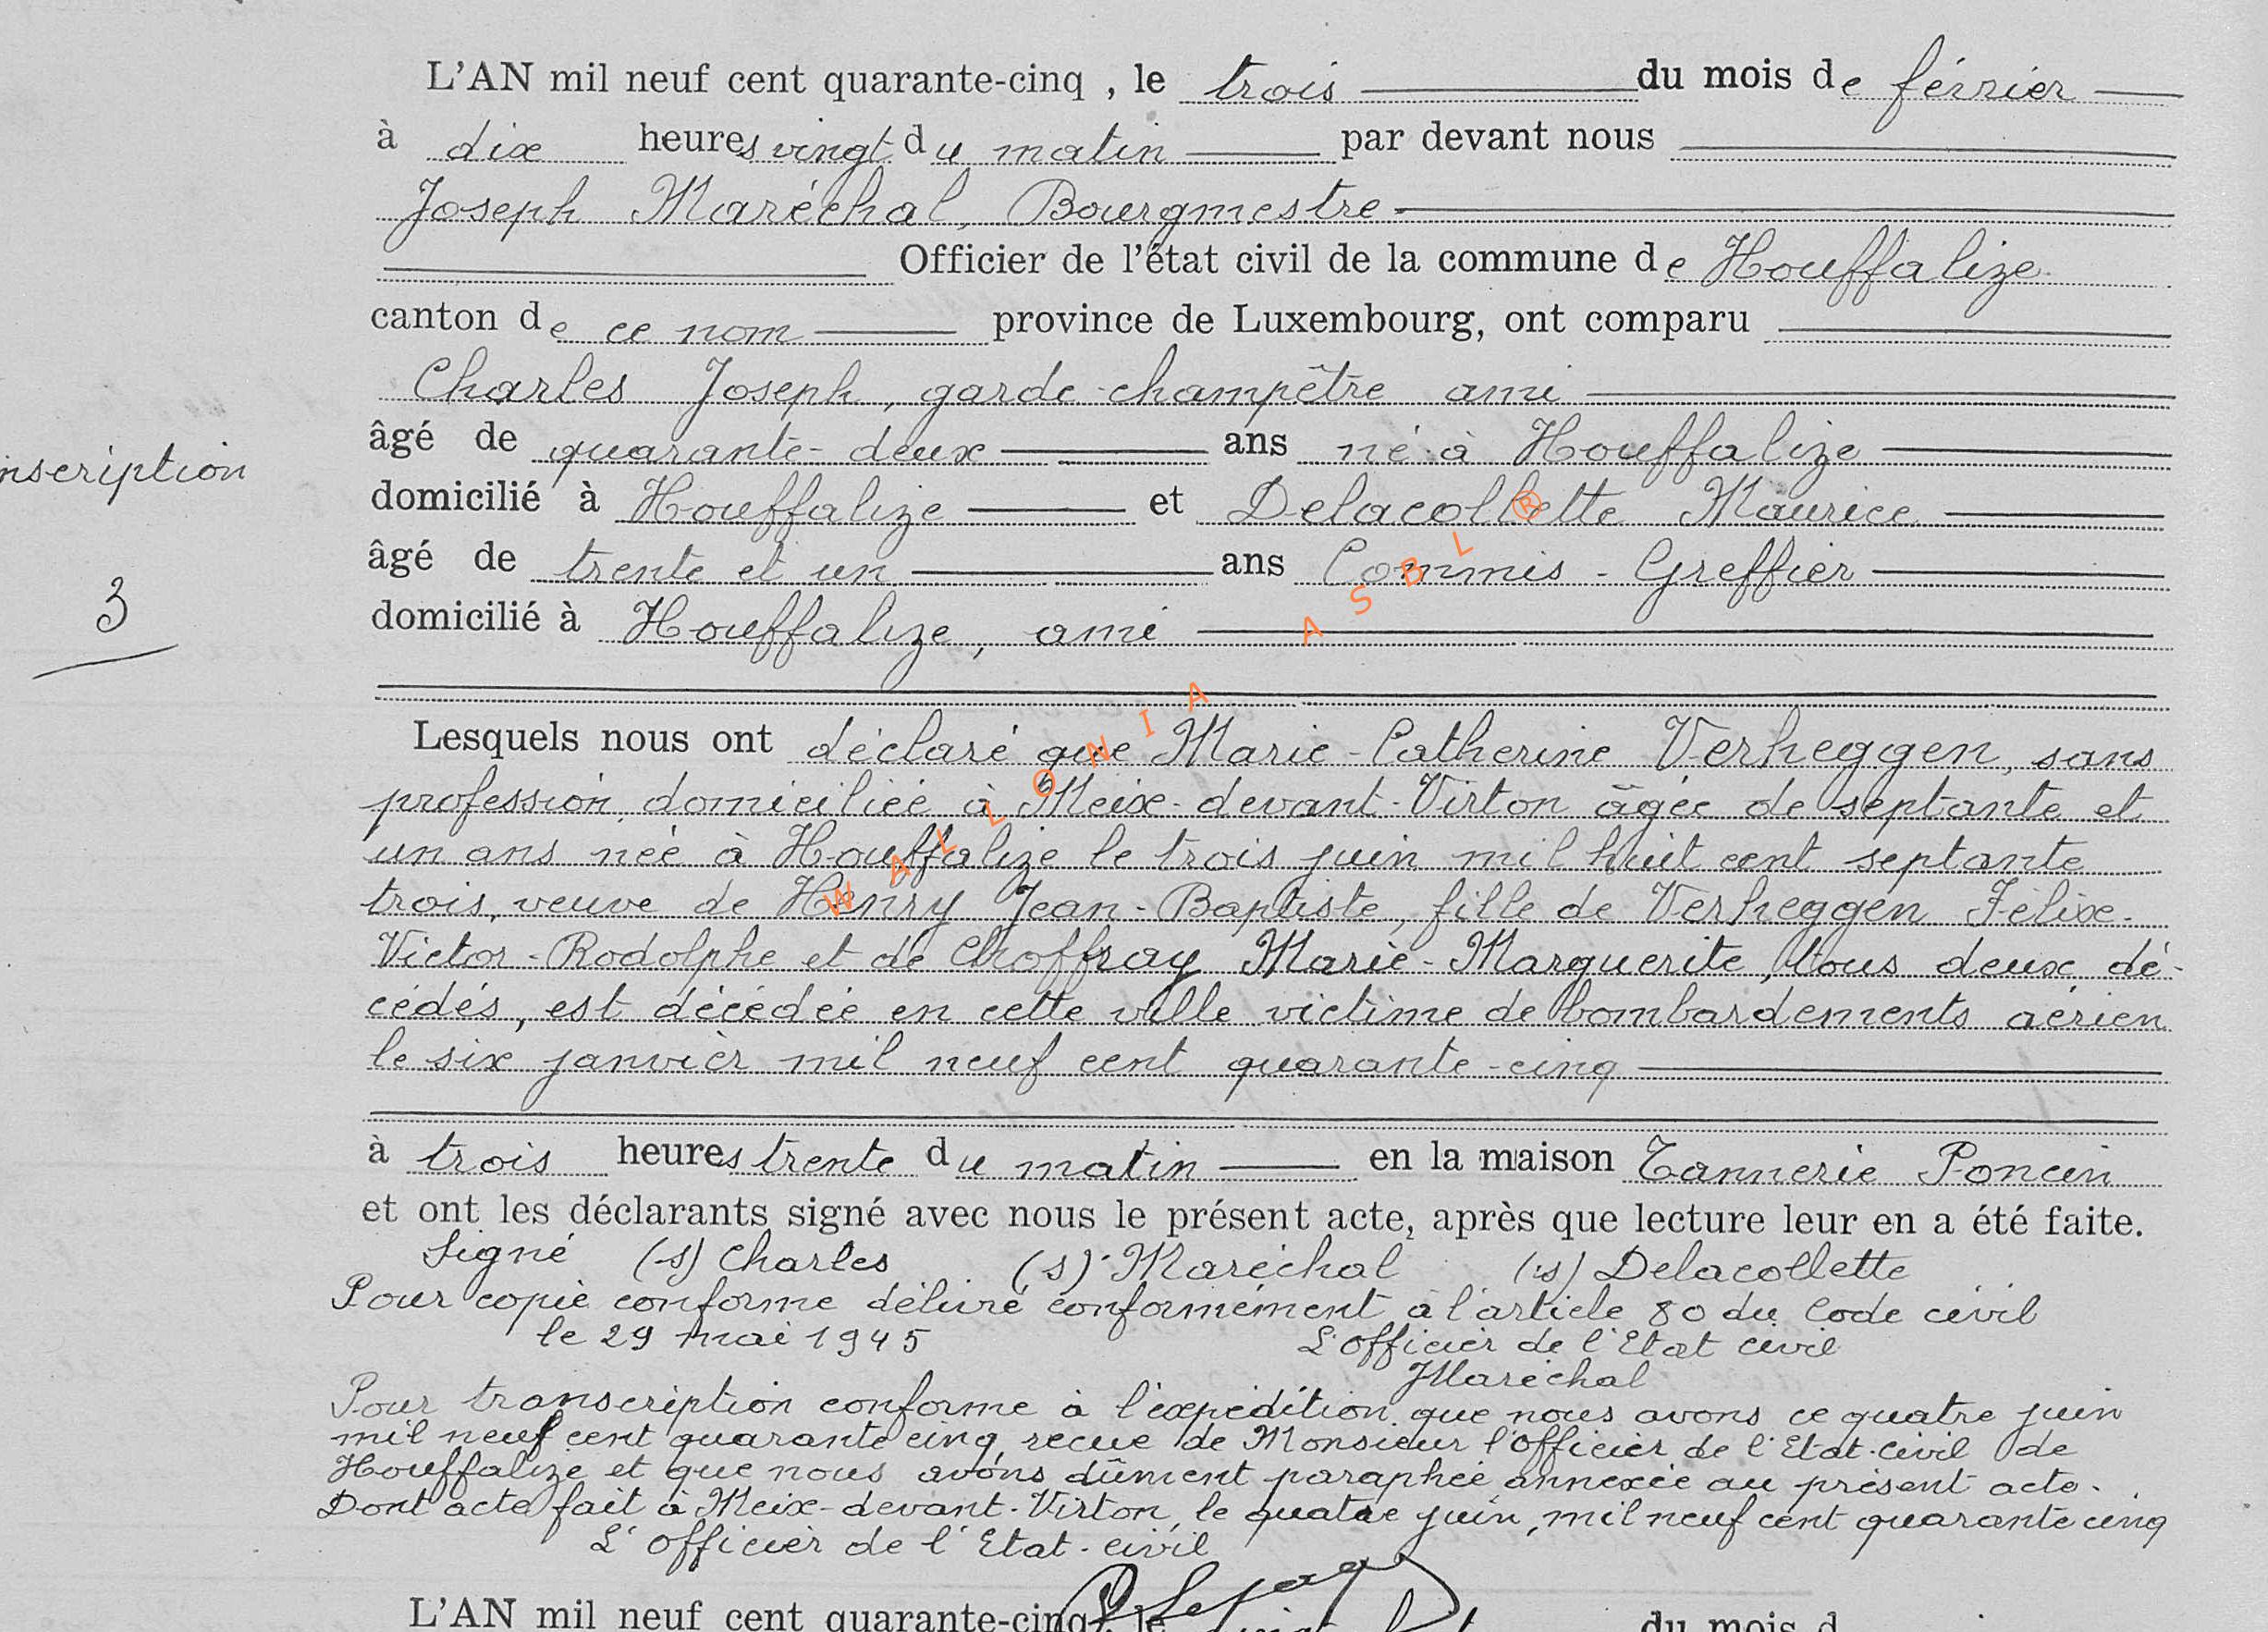 L'AN mil neuf cent quarante-cinq , le trois du mois de février
à dix heures vingt du matin par devant nous
Joseph Maréchal, Bourgmestre
Officier de l'état civil de la commune de Houffalize
canton de ce nom province de Luxembourg, ont comparu
Charles Joseph, garde-champêtre ami
âgé de quarante-deux ans né à Houffalize
nscription
domicilié à Houffalize et Delacollette Maurice
âgé de trente et un ans Commis-Greffier
3
domicilié à Houffalize, ami
WALLONIA ASBL ®
Lesquels nous ont déclaré que Marie-Catherine Verheggen, sans
profession, domiciliée à Meix-devant-Virton âgée de septante et
un ans née à Houffalize le trois juin mil huit cent septante
trois, veuve de Henry Jean-Baptiste, fille de Verheggen Félix-
Victor-Rodolphe et de Choffray Marie-Marguerite, tous deux dé-
cédés, est décédée en cette ville victime de bombardements aérien
le six janvier mil neuf cent quarante-cinq
à trois heures trente du matin en la maison Tannerie Poncin
et ont les déclarants signé avec nous le présent acte, après que lecture leur en a été faite.
Signé (s) Charles (s) Maréchal (s) Delacollette
Pour copie conforme délivré conformément à l'article 80 du Code civil
le 29 mai 1945 L'officier de l'Etat civil
JMaréchal
Pour transcription conforme à l'expédition que nous avons ce quatre juin
mil neuf cent quarante cinq, recue de Monsieur l'Officier de l'Etat-Civil de
Houffalize et que nous avons dûment paraphée annexée au présent acte.
Dont acte fait à Meix-devant-Virton, le quatre juin, mil neuf cent quarante cinq
L'officier de l'Etat-civil
L'AN mil neuf cent quarante-cinq, le du mois d